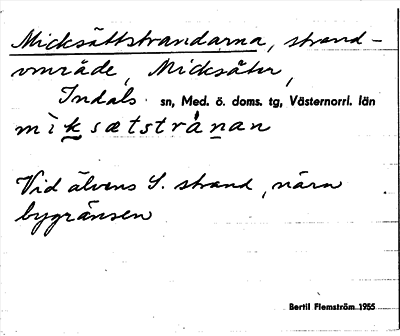 Micksättstrandarna, strand-
område, Micksäter,
Indals sn, Med. ö. doms. tg, Västernorrl. län
mìksætstrånan
Vid älvens S. strand, nära
bygränsen
Bertil Flemström 1955